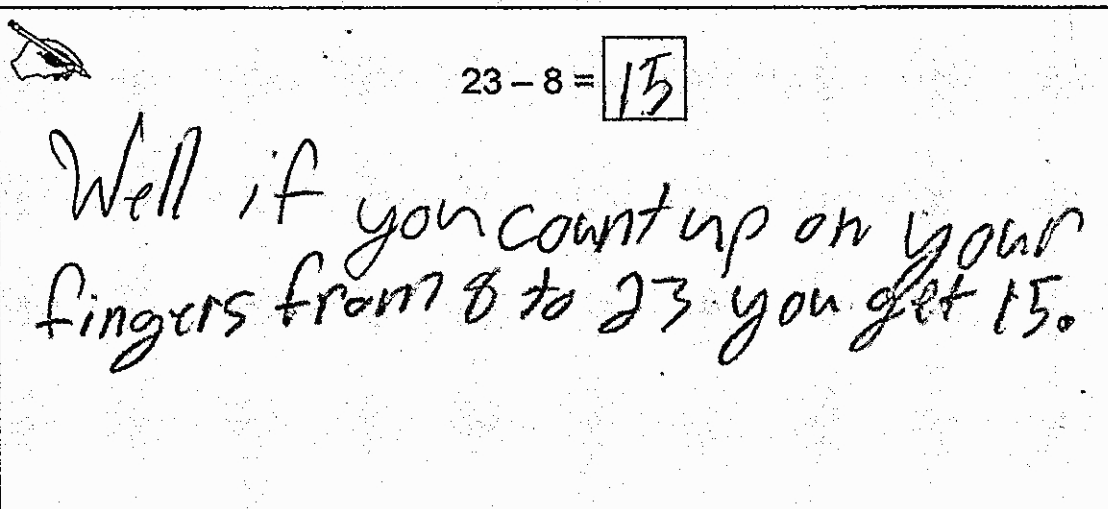 23 – 8 = 15
Well if you count up on your
fingers from 8 to 23 you get 15.